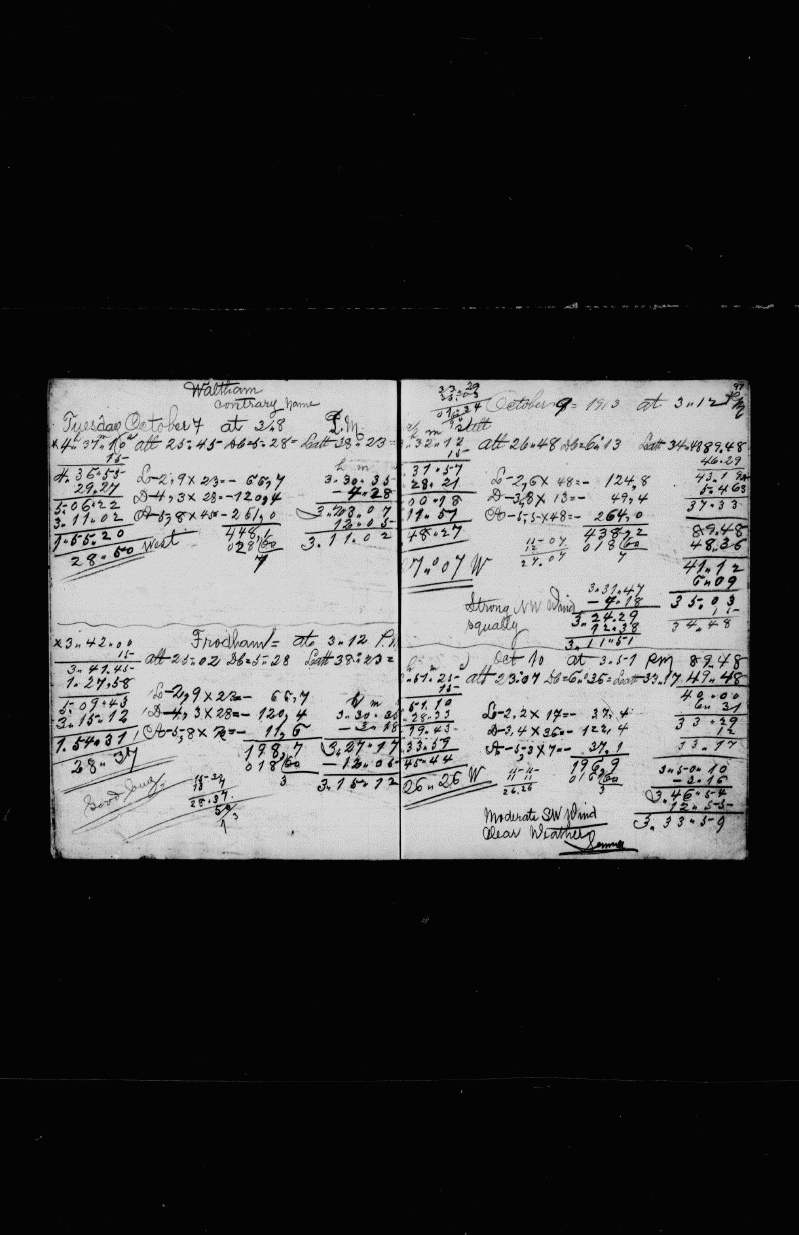 Waltham
contrary name
Tuesday October 7 at 3.8 P.M.
alt 25.45 Db=5.28= Latt 38.23=
15
4.36.55
29.27
5.06.22
3.11.02
1.55.20
28.50 West
L-2,9 x 23=- 66,7
D-4,3 x 28=-120,4
A-5,8 x 45=-261,0
448,1
028/60
7
h m
3.30.35
-4.28
12.05
3.11.02
x3.42.00
15
3.41.45
1.27.58
5.09.43
3.15.12
1.54.31
28.37
Frodham= at 3.12 P.M
alt 25.02 Db=5.28 Latt 38.23=
L-2,9 x 23=- 66,7
D-4,3 x 28=- 120,4
A-5,8 x 2=- 11,6
198,7
018/60
3
h m
3.30.35
-3.18
3.27.17
-12.05
3.15.12
Good long.
28.37
97
October 9= 1913 at 3.12 P M
3.32.12
15
31.57
28.21
00.18
11.51
48.27
7.07 W
alt 26.48 Db=6.13 Latt 34.48
L-2,6 x 48=- 124,8
D-3,8 x 13=- 49,4
A-5,5 x 48=- 264,0
438,2
018/60
7
27.07
89.48
46.29
43.19
5.463
37.33
89.48
48.36
41.12
6.09
35.03
15
34.48
Strong NW Wind
squally
3.31.47
-7.18
3.24.29
12.38
3.11.51
Oct 10 at 3.51 PM
alt 23.07 Db=6.36= Latt 33.17
.51.25
15
51.10
28.33
19.43
33.59
45.44
26.26 W
L-2,2 x 17=- 37,4
D-3,4 x 36=- 122,4
A-5,3 x 7=- 37,1
196,9
018/60
3
26.26
89.48
49.48
40.00
6.31
33.29
12
33.17
3.50.10
-3.16
3.46.54
12.55
3.33.59
Moderate SW Wind
Clear Weather